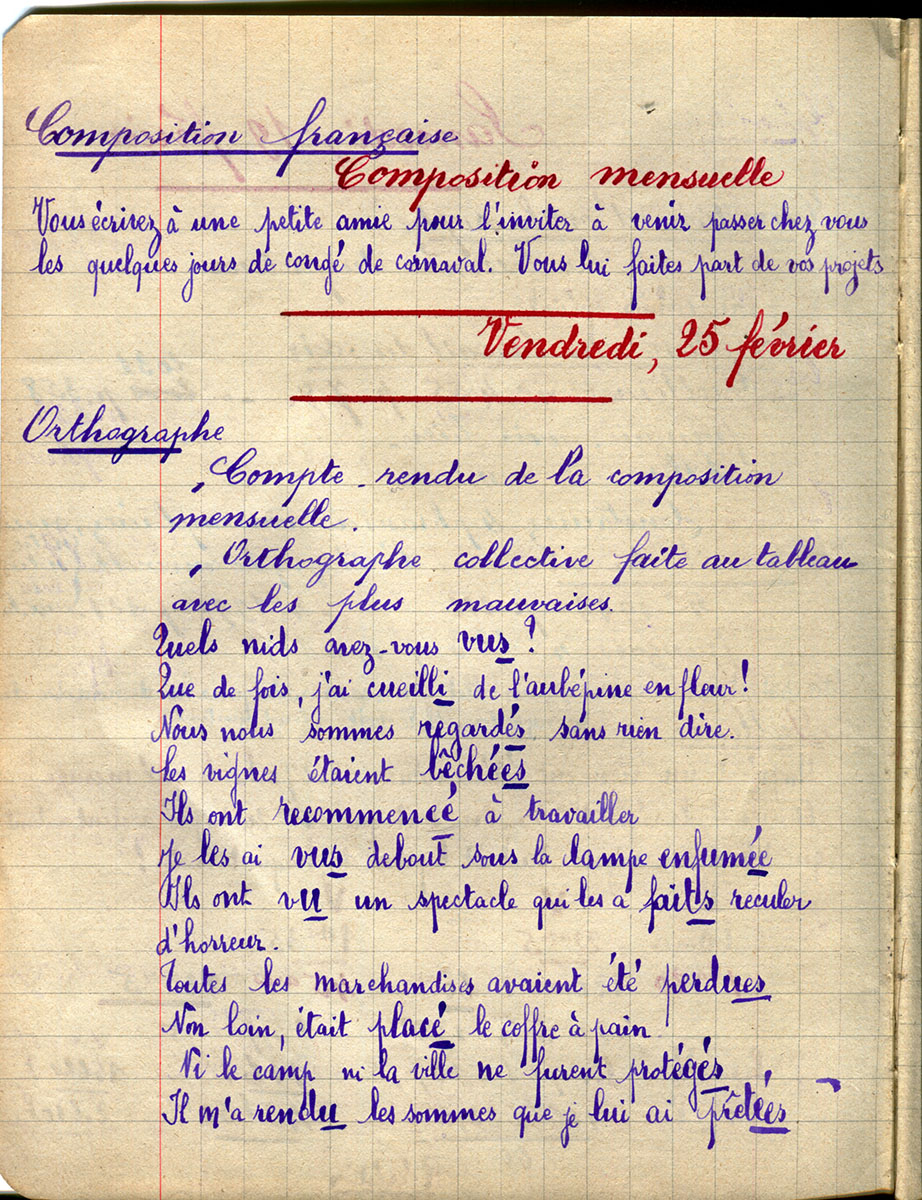 Composition française
Composition mensuelle
Vous écrivez à une petite amie pour l'inviter à venir passer chez vous
les quelques jours de congé de carnaval. Vous lui faites part de vos projets
Vendredi, 25 février
Orthographe
Compte-rendu de la composition
mensuelle.
Orthographe collective faite au tableau
avec les plus mauvaises.
Quels nids avez-vous vus?
Que de fois, j'ai cueilli de l'aubépine en fleur!
Nous nous sommes regardés sans rien dire.
Les vignes étaient bêchées
Ils ont recommencé à travailler
Je les ai vus debout sous la lampe enfumée
Ils ont vu un spectacle qui les a faits reculer
d'horreur.
Toutes les marchandises avaient été perdues
Non loin, était placé le coffre à pain
Ni le camp ni la ville ne furent protégés
Il m'a rendu les sommes que je lui ai prêtées